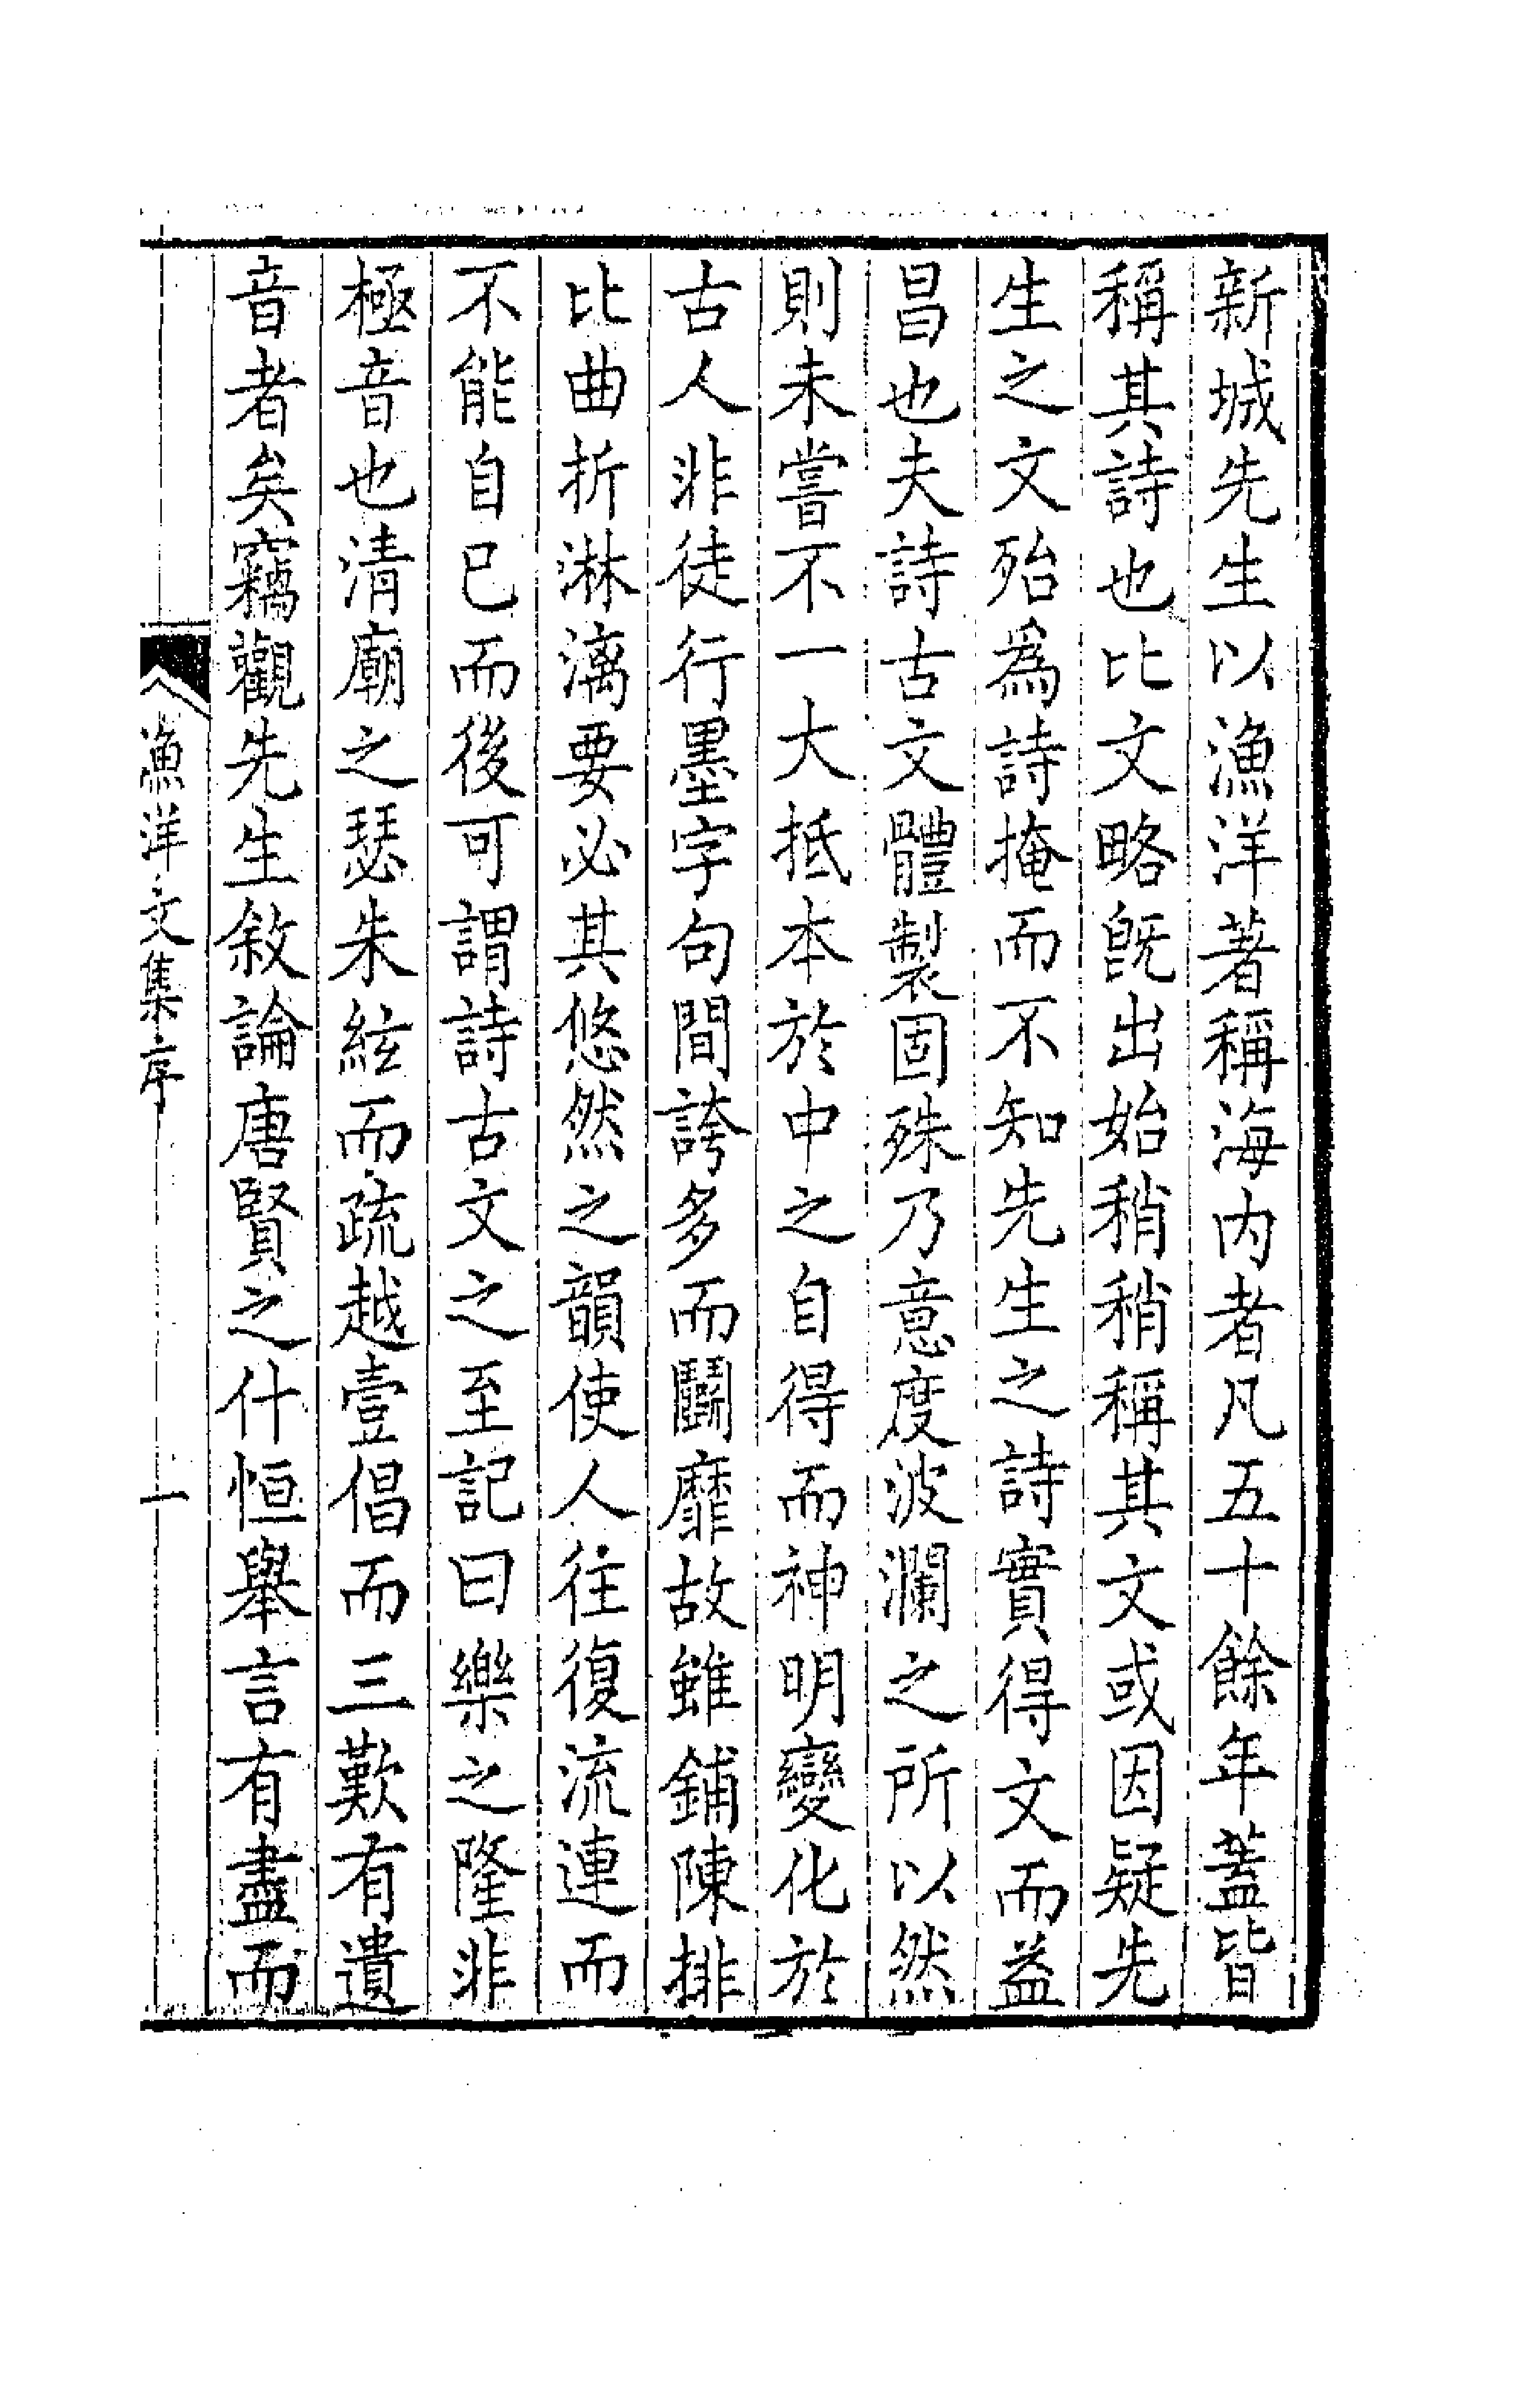 新城先生以漁洋著稱海內者凡五十餘年蓋皆
稱其詩也比文略旣出始稍稍稱其文或因疑先
生之文殆爲詩掩而不知先生之詩實得文而益
昌也夫詩古文體製固殊乃意度波瀾之所以然
則未嘗不一大抵本於中之自得而神明變化於
古人非徒行墨字句間誇多而鬬靡故雖鋪陳排
比曲折淋漓要必其悠然之韻使人往復流連而
不能自已而後可謂詩古文之至記曰樂之隆非
極音也清廟之瑟朱絃而疏越壹倡而三歎有遺
音者矣竊觀先生敘論唐賢之什恒舉言有盡而
漁洋文集序
一